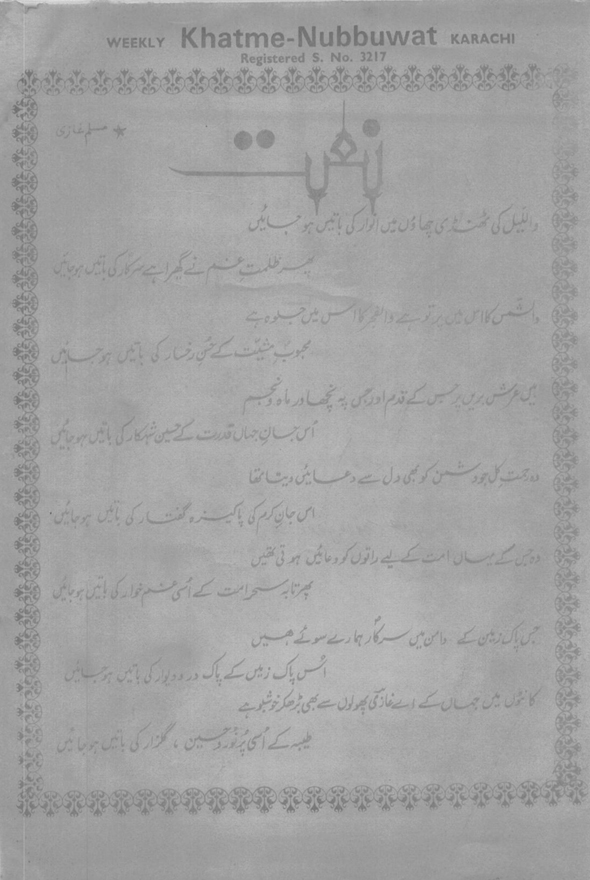 WEEKLY Khatme-Nubbuwat KARACHI
Registered S. No. 3217
نعت
★ مسلم غازی
واللیل کی ٹھنڈی چھاؤں میں انوار کی باتیں ہو جائیں
پھر ظلمتِ غم نے گھیرا ہے سرکار کی باتیں ہو جائیں
والشمس کا اس میں پرتو ہے والفجر کا اس میں جلوہ ہے
محبوبِ مشیّت کے حُسنِ رخسار کی باتیں ہو جائیں
ہیں عرش بریں پر جس کے قدم اور جس پہ نچھاور ماہ و نجم
اُس جانِ جہاں قدرت کے حسین شہکار کی باتیں ہو جائیں
وہ رحمتِ کل جو دشمن کو بھی دل سے دعائیں دیتا تھا
اس جانِ کرم کی پاکیزہ گفتار کی باتیں ہو جائیں
وہ جس کے یہاں امت کے لیے راتوں کو دعائیں ہوتی تھیں
پھر تا بہ سحر امت کے اُسی غم خوار کی باتیں ہو جائیں
جس پاک زمین کے دامن میں سرکارؐ ہمارے سوئے ہیں
اُس پاک زمیں کے پاک در و دیوار کی باتیں ہو جائیں
کانٹوں میں جہاں کے اے غازی پھولوں سے بھی بڑھکر خوشبو ہے
طیبہ کے اُسی پُر نور و حسین ، گلزار کی باتیں ہو جائیں